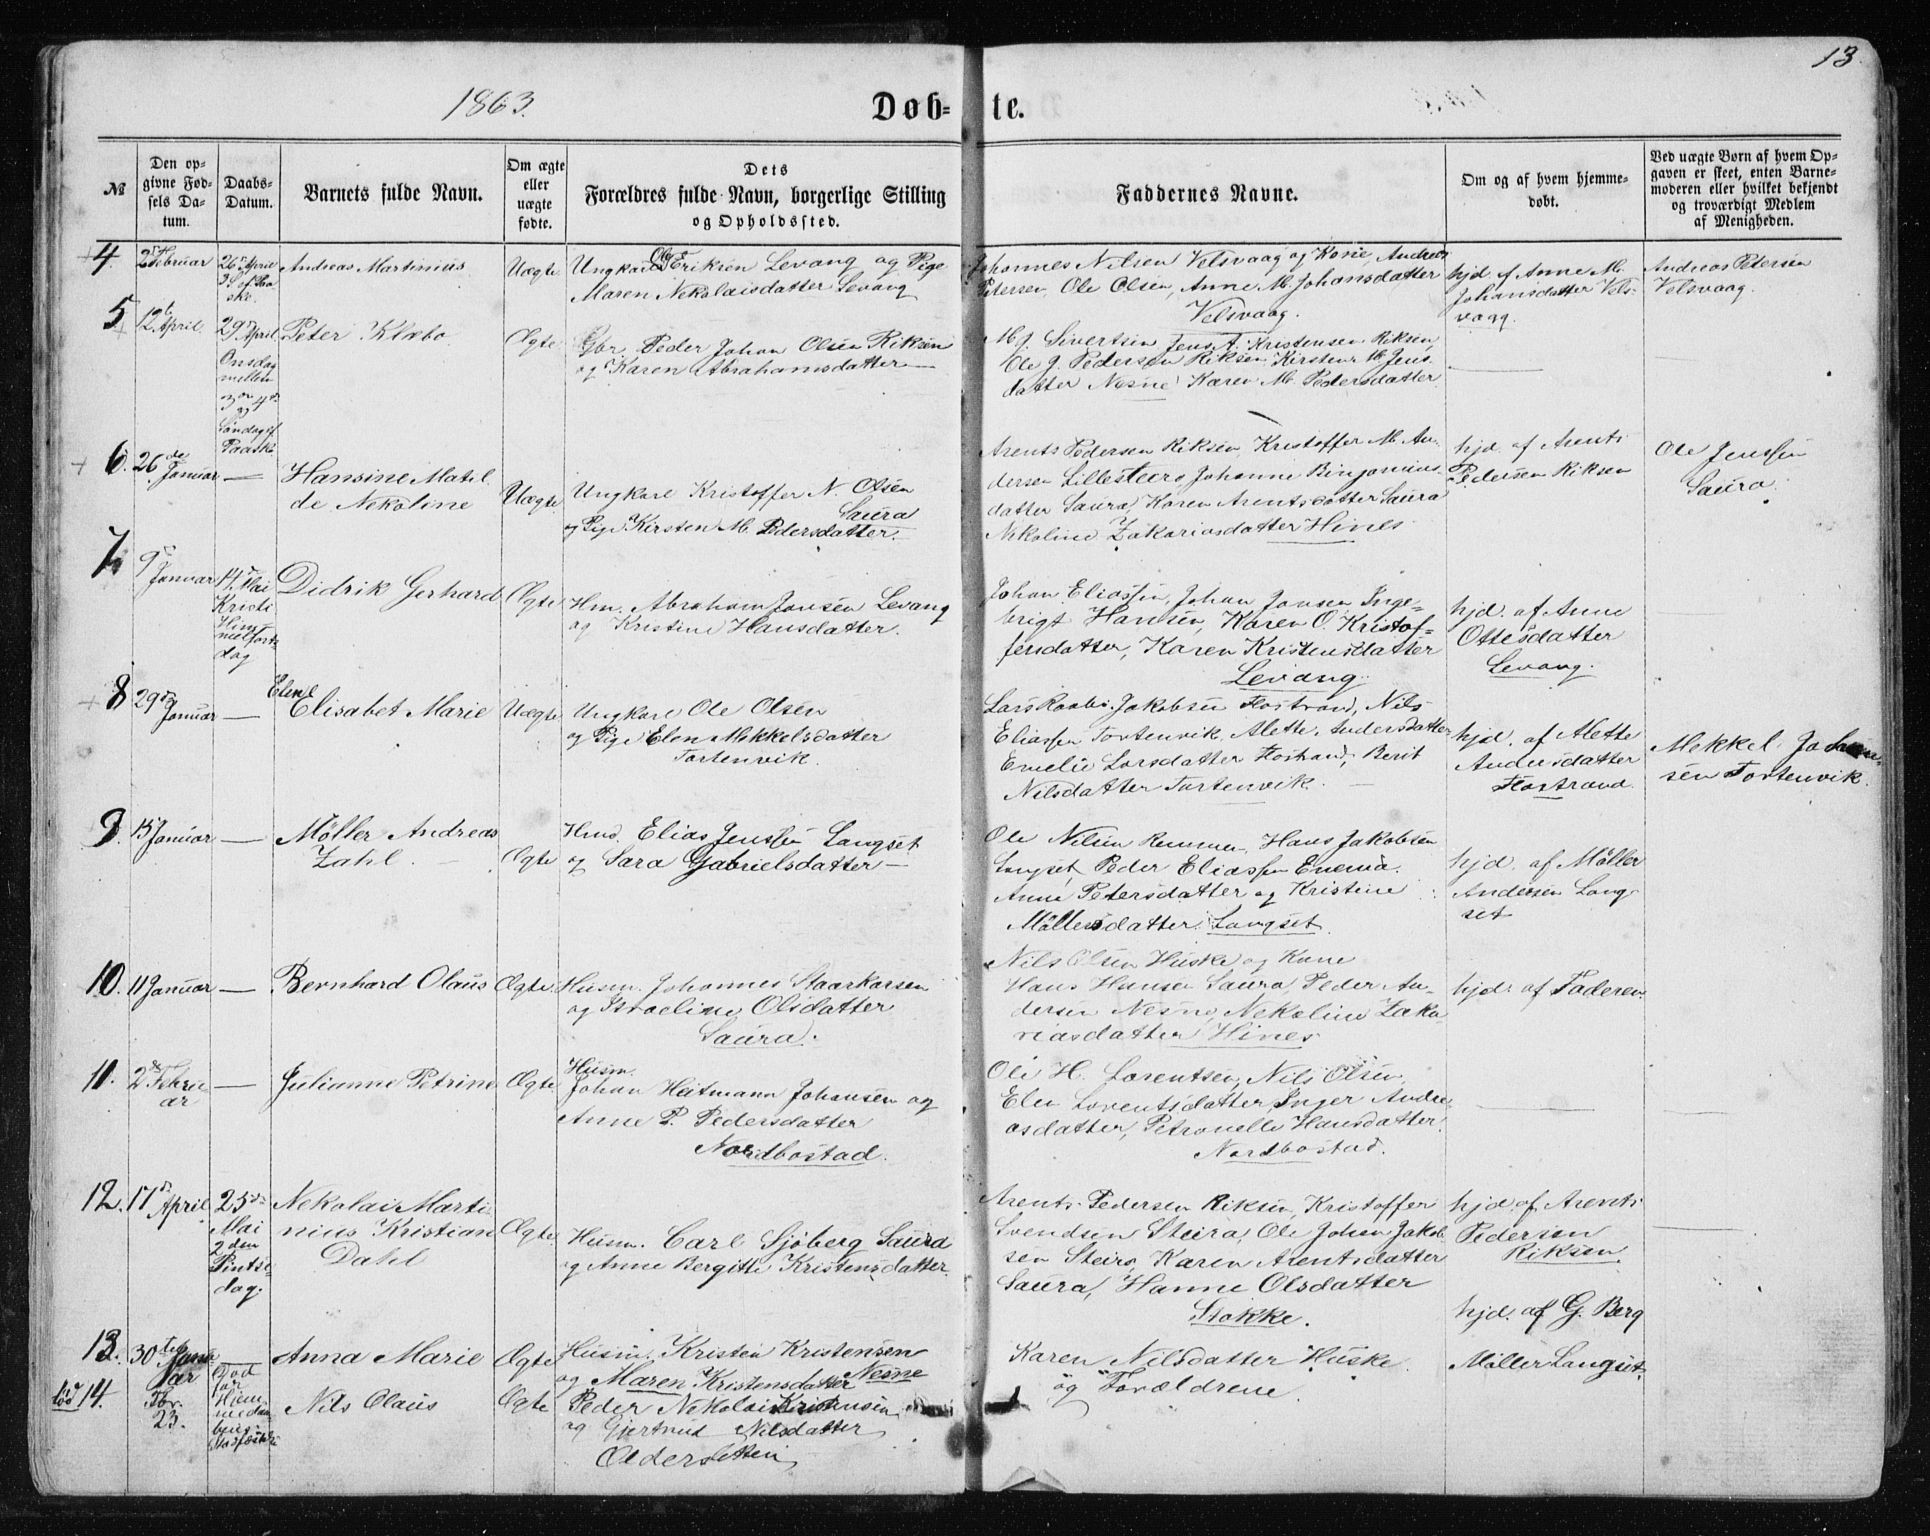 13.
1863.
Døb-te.
№
Den opgivne Fødsels Datum.
Daabs-Datum.
Barnets fulde Navn.
Om ægte eller uægte fødte.
Dets Forældres fulde Navn, borgerlige Stilling og Opholdssted.
Faddernes Navne.
Om og af hvem hjemmedøbt.
Ved uægte Børn af hvem Opgaven er skeet, enten Barnemoderen eller hvilket bekjendt og troværdigt Medlem af Menigheden.
4.
2 Februar
26 April
3 S. ef. Paaske.
Andreas Martinius
Uægte
Ungkarl Ole Eriksen Levang og Pige
Maren Nekolaisdatter Levang
Johannes Nilsen Velsvaag og Kone, Andreas
Petersen, Ole Olsen, Anne M. Johansdatter
Velsvaag.
hjd. af Anne M.
Johansdatter Vels-
vaag.
Andreas Petersen
Velsvaag.
5
12 April.
29 April
Onsdag
mellem
3 og 4
Søndag ef.
Paaske
Peter Klæbo
Ægte
Gbr. Peder Johan Olsen Riksen
og Karen Abrahamsdatter
M. J. Sivertsen Jens A. Kristensen Riksen,
Ole J. Pedersen Riksen Kirsten M. Jens-
datter Nesne Karen M. Pedersdatter
6.
26de Januar
Hansine Matil
de Nekoline
Uægte
Ungkarl Kristoffer N. Olsen
Saura
og Pige Kirsten M. Pedersdatter.
Arents Pedersen Riksen, Kristoffer M. An-
dersen Lillesteero, Johanne Binjamins
datter Saura, Karen Arentsdatter Saura
Nekoline Zakariasdatter Hines
hjd. af Arents
Pedersen Riksen
Ole Jenssen
Saura.
7.
9 Januar
14. Mai
Kristi
Him
melfarts
dag
Didrik Gerhard
Ægte
Hm. Abraham Jonsen Levang
og Kristine Hansdatter.
Johan Eliassen, Johan Jonsen Inge-
brigt Hansen, Karen O. Kristof-
fersdatter, Karen Kristensdatter
Levang.
hjd. af Anne
Ottesdatter
Levang.
8
29 Januar
Elen
Elisabet Marie
Uægte
Ungkarl Ole Olsen
og Pige Elen Mekkelsdatter
Tortenvik.
Lars Raabi. Jakobsen Flostrand, Nils
Eliassen Tortenvik, Alethe Andersdatter
Emelie Larsdatter Flostrand, Berit
Nilsdatter Tortenvik.
hjd. af Alette
Andersdatter
Flostrand.
Mekkel
sen Tortenvik.
9.
15 Januar
Møller Andreas
Zahl.
Ægte
Hmd. Elias Jenssen Langset
og Sara Gabrielsdatter
Ole Nilsen Remmen, Hans Jakobsen
Langset, Peder Eliassen Enemo.
Anne Petersdatter og Kristine
Møllersdatter, Langset
hjd. af Møller
Andersen Lang-
set
10.
11 Januar
Bernhard Olaus
Ægte
Husm. Johannes Staarkarsen
og Israeline Olsdatter
Saura.
Nils Olsen Huske og Kone
Hans Hansen Saura, Peder An-
dersen Nesne, Nekoline Zaka
riasdatter Hines
hjd. af Faderen.
11.
2 Febru
ar
Julianne Petrine
Ægte
Husm.
Johan Heitmann Johansen og
Anne P. Pedersdatter
Nordbostad.
Ole H. Lorentsen, Nils Olsen,
Elen Lorentsdatter, Inger Andre-
asdatter, Petronelle Hansdatter
Nordbostad.
12.
17 April
25
Mai
2den
Pintse-
dag.
Nekolai Marti
nius Kristian
Dahl
Ægte
Husm. Carl Sjöberg Saura
og Anne Bergitte Kristensdatter.
Arents Pedersen Riksen, Kristoffer
Svendsen Steira, Ole Johan Jakob
sen Steiro, Karen Arentsdatter
Saura, Hanne Olsdatter
Stokke.
hjd. af Arents
Pedersen
Riksen.
13.
30te Janu
ar
Anna Marie
Ægte
Husm. Kristen Kristensen
og Maren Kristensdatter Nesne
Karen Nilsdatter Huske
og Forældrene.
hjd. af G. Berg
14.
Fbr.
23.
Nils Olaus
Ægte
Peder Nekolai Kristensen
og Gjertrud Nilsdatter
Oldersletten
Møller Langset.